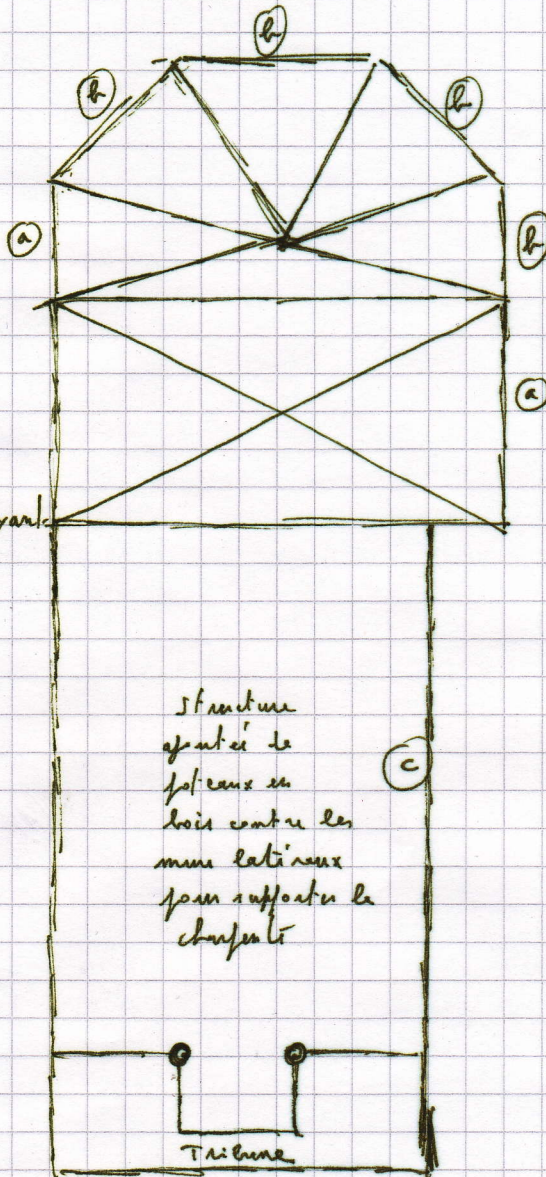 b
b
b
a
b
a
structure
ajoutée de
poteaux en
bois contre les
murs latéraux
pour supporter la
charpente
c
Tribune